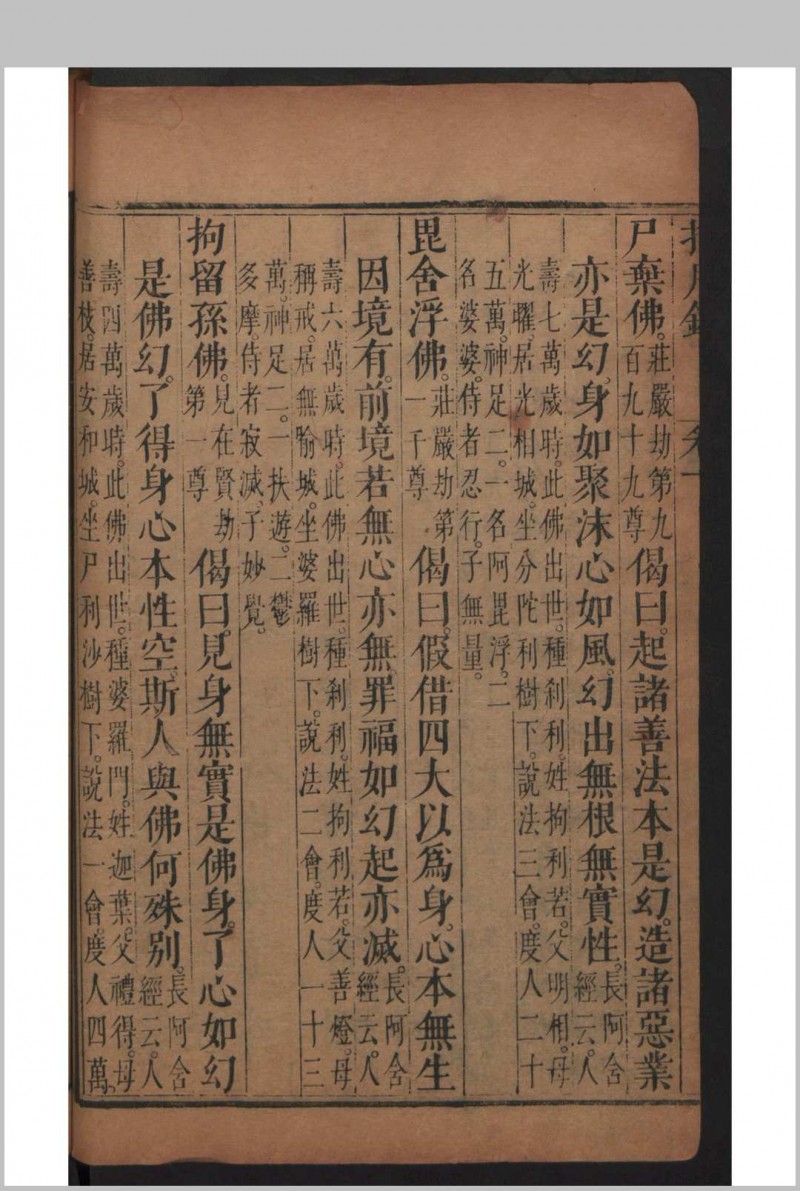 指月錄 卷一
尸棄佛。莊嚴劫第九百九十九尊偈曰。起諸善法本是幻。造諸惡業
亦是幻。身如聚沫心如風。幻出無根無實性。長阿含經云。人
壽七萬歲時。此佛出世。種刹利。姓拘利若。父明相。母
光耀。居光相城。坐分陀利樹下。說法三會。度人二十
五萬。神足二。一名阿毘浮。二
名婆婆。侍者忍行。子無量。
毘舍浮佛。莊嚴劫第一千尊偈曰。假借四大以爲身。心本無生
因境有。前境若無心亦無。罪福如幻起亦滅。長阿含經云。人
壽六萬歲時。此佛出世。種刹利。姓拘利若。父善燈。母
稱戒。居無喻城。坐婆羅樹下。說法二會。度人一十三
萬。神足二。一扶遊。二鬱
多摩。侍者寂滅。子妙覺。
拘留孫佛。見在賢劫第一尊偈曰。見身無實是佛身。了心如幻
是佛幻。了得身心本性空。斯人與佛何殊別。長阿含經云。人
壽四萬歲時。此佛出世。種婆羅門。姓迦葉。父禮得。母
善枝。居安和城。坐尸利沙樹下。說法一會。度人四萬。